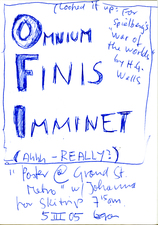 (Looked it up: for
Spielberg's
"War of
the worlds"
by H.G.
Wells
OMNIUM
FINIS
IMMINET
(Ahhh - REALLY?)
"Poster @ Grand St.
Metro" w/ Johanna
for ski trip 7:15am
5 III 05